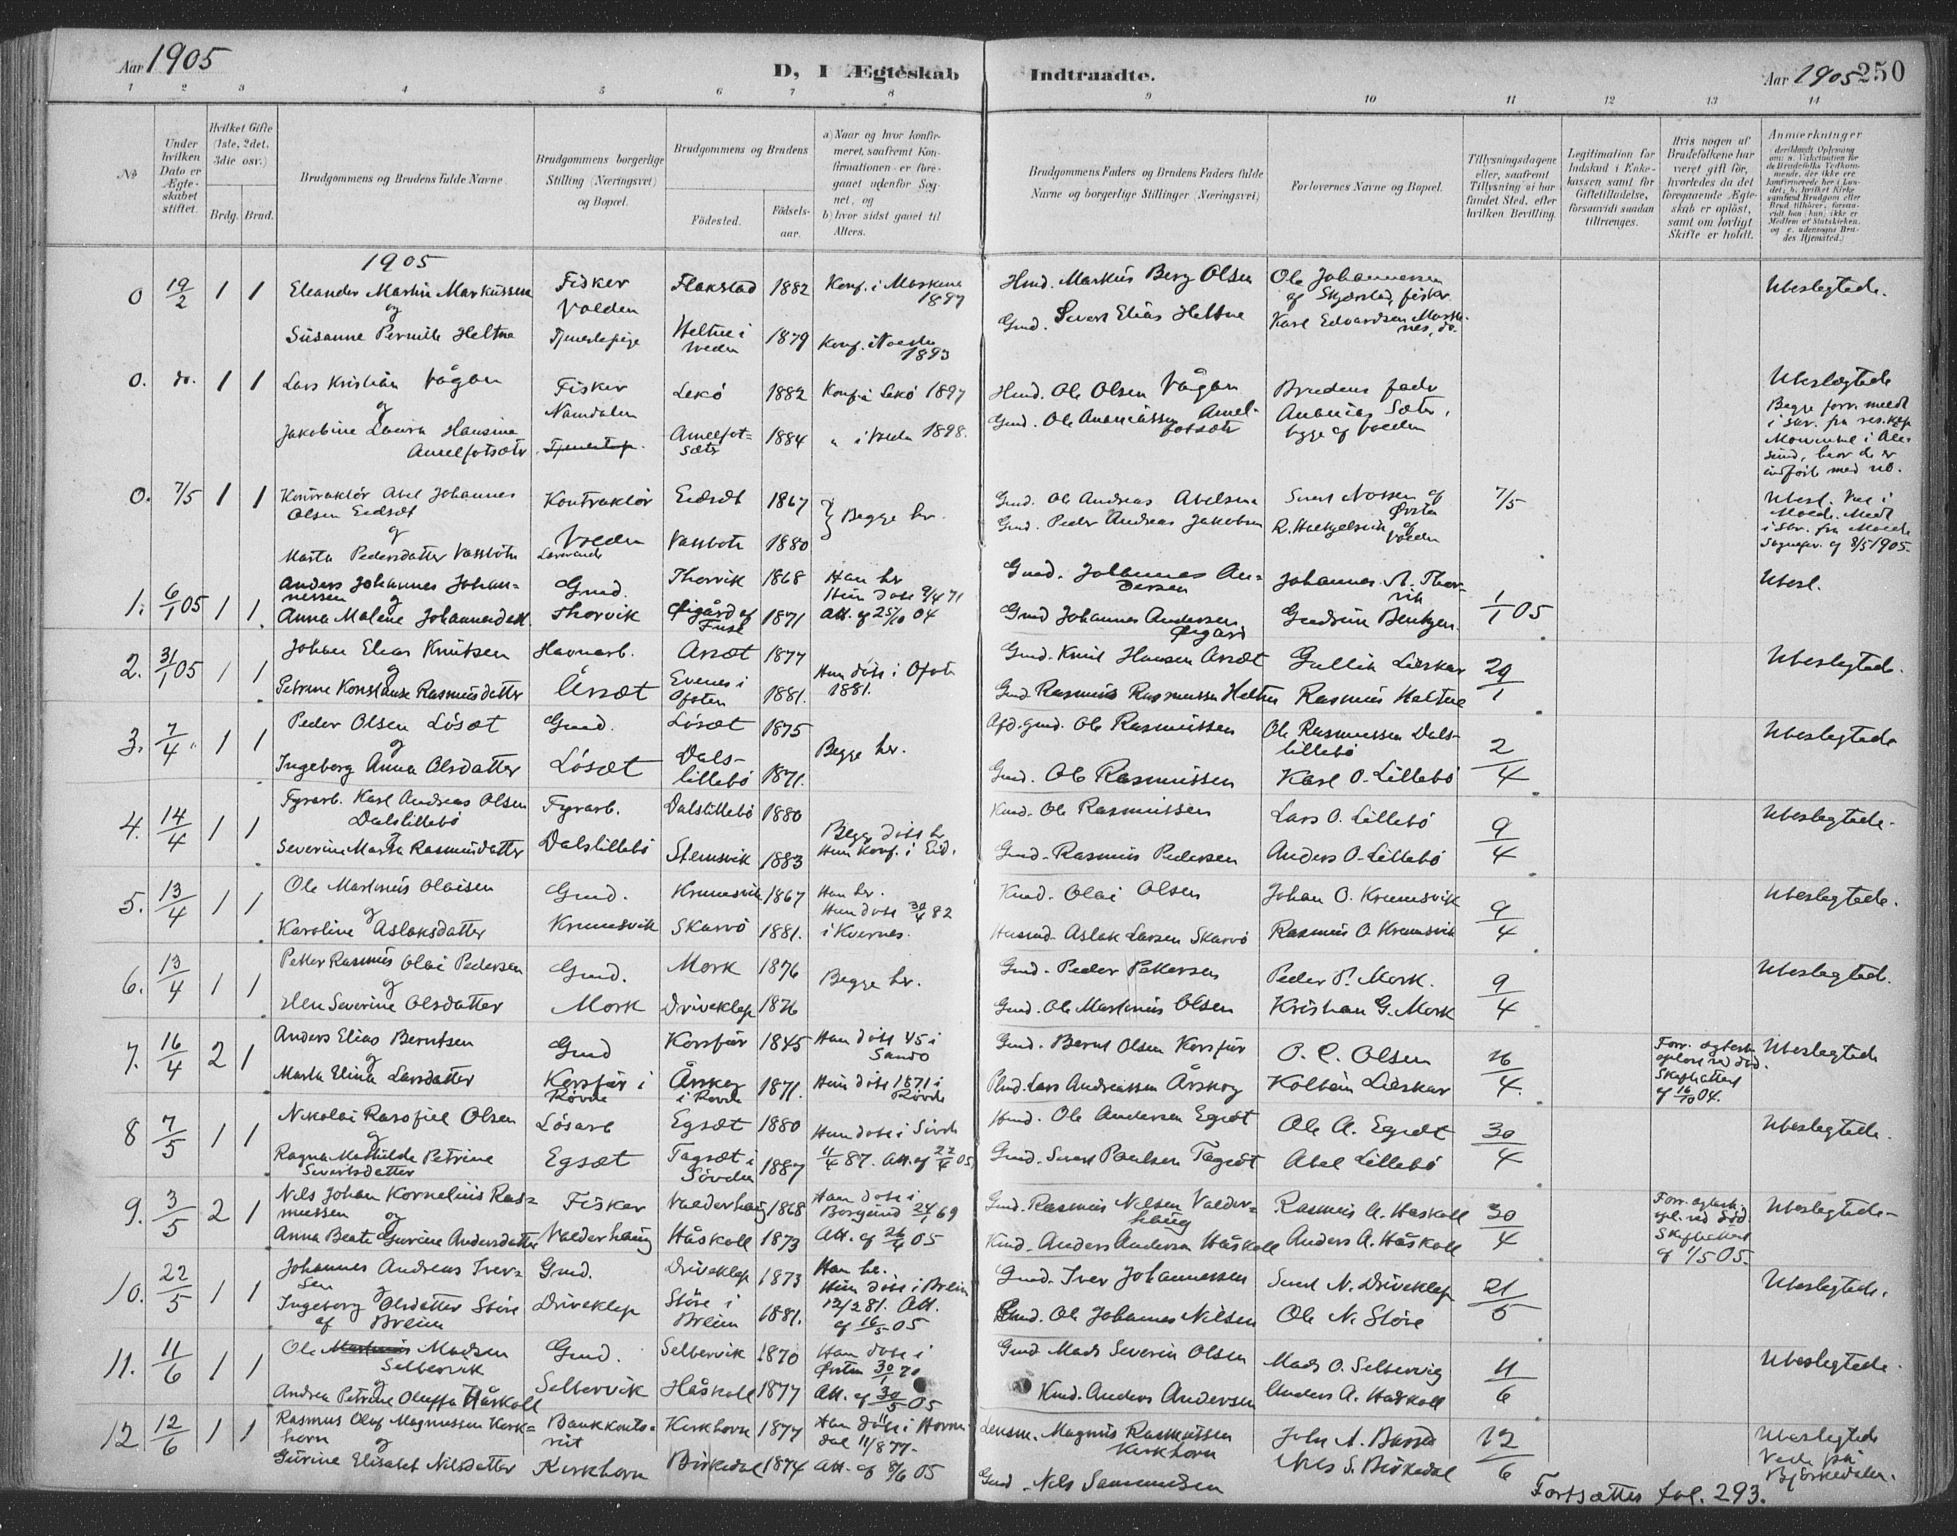 Aar 1905
D, I Ægteskab Indtraadte.
Aar 1905 250
1 2 3 4 5 6 7 8 9 10 11 12 13 14
No
Under hvilken Dato er Ægteskabet stiftet.
Hvilket Gifte (1ste, 2det, 3die osv.)
Brdg. Brud.
Brudgommens og Brudens fulde Navne.
Brudgommens borgerlige Stilling (Næringsvei) og Bopæl.
Brudgommens og Brudens
Fødested. Fødselsaar.
a) Naar og hvor konfirmeret, saafremt Konfirmationen er foregaaet udenfor Sognet, og
b) hvor sidst gaaet til Alters.
Brudgommens Faders og Brudens Faders fulde Navne og borgerlige Stillinger (Næringsvei)
Forlovernes Navne og Bopæl.
Tillysningsdagene eller, saafremt Tillysning ei har fundet Sted, efter hvilken Bevilling.
Legitimation for Indskud i Enkekassen samt for Giftetilladelse, forsaavidt saadan tiltrænges.
Hvis nogen af Brudefolkene har været gift før, hvorledes da det foregaaende Ægteskab er opløst, samt om lovligt Skifte er holdt.
Anmærkninger
1905
0 19/2 1 1 Eleander Martin Markussen
og
Susanne Pernille Heltne
Fisker
Volden
Tjenestepige
Flakstad 1882
Heltne i Volden 1879
Konf. i Moskenes 1897
Konf. i Volden 1893
Husmd. Markus Berg Olsen
Gmd. Sivert Elias Heltne
Ole Johannessen af Skjærstad, fisker
Karl Edvardsen Moskenes, do.
Ubeslegtede.
0. do. 1 1 Lars Kristian Vågan
og
Jakobine Laura Hansine Amelfotsæter
Fisker
Namdalen
Tjenestep.
Lekø 1882
Amelfotsæter 1884
Konf. i Lekø 1897
" i Volda 1898.
Husmd. Ole Olsen Vågan
Gmd. Ole Ananiassen Amelfotsæter
Brudens fader
Ananias Sæter,
begge af Volden
Ubeslægtede
Begge forr. meldt i skr. fra res. kap. i Ålesund, hvor de er indført med no.
0. 7/5 1 1 Kontraktör Abel Johannes Olsen Eidsæt
og
Marta Pedersdatter Vassbotn
Kontraktör
Volden
Eidsæt 1867
Vassbotn 1880
Begge her
Gmd. Ole Andreas Abelsen
Gmd. Peder Andreas Jakobsen
Sivert Nossen af Ørsten
R. Hetlelsvik af Volden
7/5
Ubesl. Vies i Molde. Meldt i skr. fra Molde Sognepr. af 8/5 1905.
1. 6/1 05 1 1 Anders Johannes Johannessen
og
Anna Malene Johannesdatt.
Gmd.
Thorvik
Thorvik 1868
Øigård af Fuse 1871
Han her
Hun døbt 9/4 71
Att. af 25/10 04
Gmd. Johannes Andersen
Gmd Johannes Andersen Øigård
Johannes A. Thorvik
Gudrun Bentzen
1/1 05
Ubesl.
2. 31/1 05 1 1 Johan Elias Knutsen
og
Petrine Konstanse Rasmusdatter
Havnarb.
Årsæt
Årsæt 1877
Evenes i Ofoten 1881.
Hun døbt i Ofoten 1881.
Gmd. Knut Hansen Årsæt
Gmd Rasmus Rasmussen Heltne
Gullik Lidskar
Rasmus Heltne
29/1
Ubeslegtede.
3. 7/4 1 1 Peder Olsen Lösæt
og
Ingeborg Anna Olsdatter
Gmd.
Lösæt
Lösæt 1875
Dalslillebö 1871.
Begge her.
Afd. gmd. Ole Rasmussen
Gmd. Ole Rasmussen
Ole Rasmussen Dalslillebö
Karl O. Lillebö
2/4
Ubeslegtede
4. 14/4 1 1 Fyrarb. Karl Andreas Olsen Dalslillebö
og
Severine Marta Rasmusdatter
Fyrarb.
Dalslillebö
Dalslillebö 1880
Stemsvik 1883
Begge døbt her
Hun konf. i Eid.
Kmd. Ole Rasmussen
Gmd. Rasmus Pedersen
Lars O. Lillebö
Anders O. Lillebö
9/4
Ubeslegtede.
5. 13/4 1 1 Ole Martinus Olaisen
og
Karoline Aslaksdatter
Gmd.
Krumsvik
Krumsvik 1867
Skarvö 1881.
Han her.
Hun døbt 30/4 82 i Kvernes.
Kmd. Olai Olsen
Husmd. Aslak Larsen Skarvö
Johan O. Krumsvik
Rasmus O. Krumsvik
9/4
Ubeslegtede.
6. 13/4 1 1 Petter Rasmus Olai Pedersen
og
Elen Severine Olsdatter
Gmd.
Mork
Mork 1876
Driveklep 1876
Begge her.
Gmd. Peder Pettersen
Gmd. Ole Martinus Olsen
Peder P. Mork.
Kristian G. Mork
9/4
Ubeslegtede.
7. 16/4 2 1 Anders Elias Berntsen
og
Marta Elina Larsdatter
Gmd
Korsfur i Røvde
Korsfur 1845
Årskog i Rovde 1871.
Han døbt 45 i Sandö
Hun döbt 1871 i Rövde
Gmd. Bernt Olsen Korsfur
Pmd. Lars Andreassen Årskog
O. C. Olsen
Kolbein Lidskar
16/4.
Forr. ægtesk. opløst ved död. Skifteattest af 16/10 04.
Ubeslegtede
8 7/5 1 1 Nikolai Rasofiel Olsen
og
Ragna Mathilde Petrine Sivertsdatter
Lösarb
Egsæt
Egsæt 1880
Tagsæt i Sövden 1887
Hun döbt i Sövde
11/4 87. Att. af 22/4 05
Husmd. Ole Andersen Egsæt
Gmd. Sivert Paulsen Tagsæt
Ole A. Egsæt
Abel Lillebö
30/4
Ubeslegtede.
9. 3/5 2 1 Nils Johan Kornelius Rasmussen
og
Anna Beate Gurine Andersdatter
Fisker
Valderhaug
Valderhaug 1868
Håskoll 1873
Han döbt i Borgund 24/1 69
Att. af 26/4 05
Gmd. Rasmus Nilsen Valderhaug
Kmd. Anders Andersen Håskoll
Rasmus A. Haskoll
Anders A. Håskoll
30/4
Forr. ægtesk. opl. ved död. Skifteattest af 1/5 05.
Ubeslegtede
10. 22/5 1 1 Johannes Andreas Iversen
og
Ingeborg Olsdatter Støre af Breim
Gmd.
Driveklep
Driveklep 1873
Støre i Breim 1881.
Han her.
Hun döbt i Breim 12/2 81. Att. af 16/5 05
Gmd. Iver Johannessen
Gmd. Ole Johannes Nilsen
Sivert N. Driveklep
Ole N. Støre
21/5
Ubeslegtede.
11. 11/6 1 1 Ole Martinus Madsen Selbervik
og
Andrea Petrine Oluffa Håskoll
Gmd.
Selbervik
Selbervik 1870
Håskoll 1877
Han døbt i Ørsten 30/1 70
Att. af 30/5 05
Gmd Mads Severin Olsen
Kmd. Anders Andersen
Mads O. Selbervig
Anders A. Haskoll
11/6
Ubeslegtede.
12 12/6 1 1 Rasmus Olaf Magnussen Kirkhorn
og
Gurine Elisabet Nilsdatter
Bankkontorist
Kirkhorn
Kirkhorn 1877
Birkedal 1874
Han døbt i Hornindal 11/8 77.
Att. af 8/6 05
Lensm. Magnus Rasmussen Kirkhorn
Gmd. Nils Samuelsen
John A. Barsta
Nils S. Birkedal
12/6
Ubeslegtede
Viede på Björkedalen.
Fortsættes fol. 293.